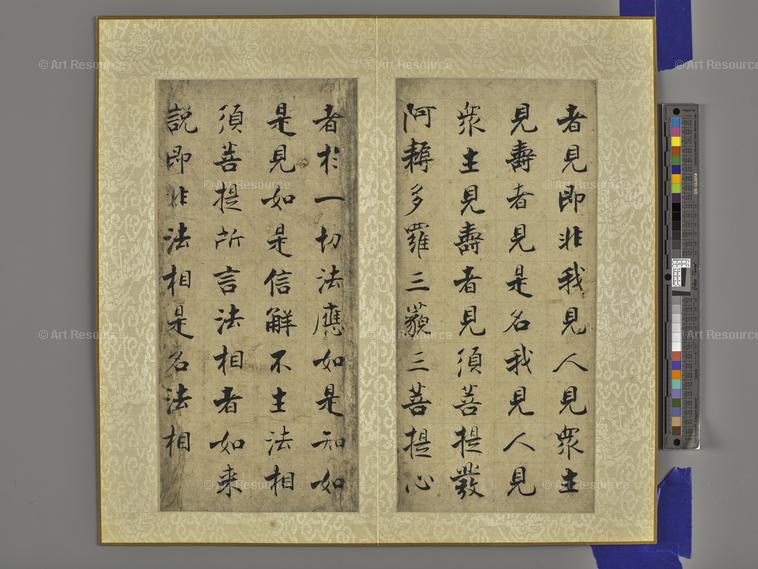 者見即非我見人見衆生
見壽者見是名我見人見
衆生見壽者見須菩提發
阿耨多羅三藐三菩提心
者於一切法應如是知如
是見如是信解不生法相
須菩提所言法相者如来
説即非法相是名法相
© Art Resource
© Art Resource
© Art Resource
© Art Resource
© Art Resource
© Art Resource
© Art Resource
© Art Resource
© Art Resource
© Art Resource